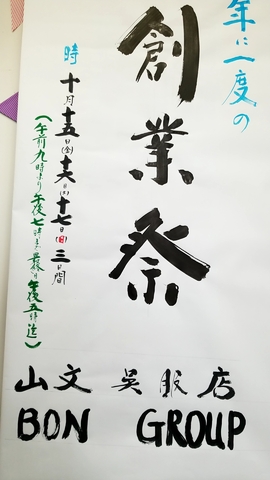 年に一度の
創業祭
時 十月十五日(金)十六日(土)十七日(日)三日間
(午前九時より午後七時まで最終日午後五時迄)
山文 呉服店
BON GROUP